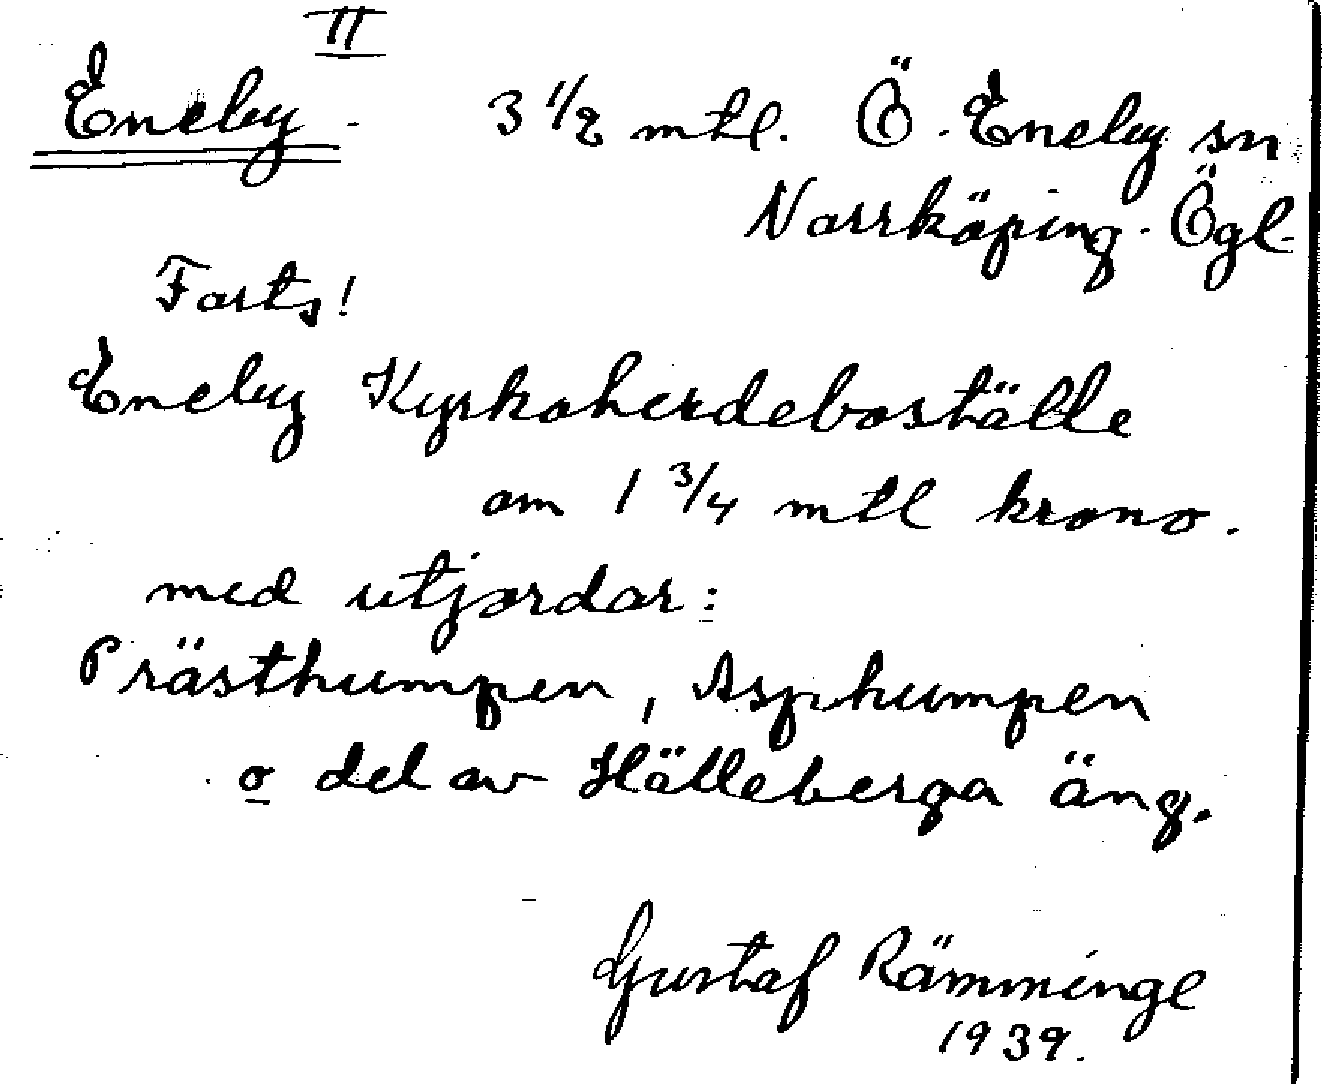 II
Eneby. 3 1/2 mtl. Ö. Eneby sn
Norrköping. Ögl.
Forts!
Eneby Kyrkoherdeboställe
om 1 3/4 mtl krono.
med utjordar:
Prästhumpen, Asphumpen
o del av Hälleberga äng.
Gustaf Rämminge
1939.